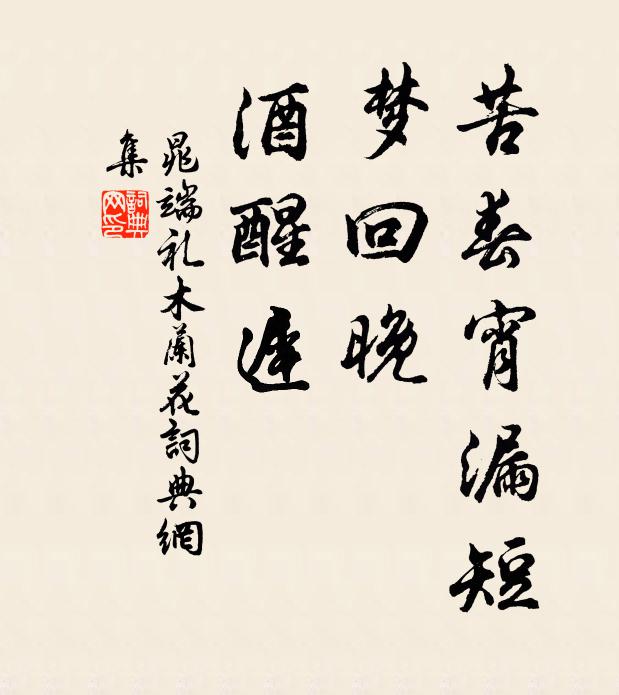 苦春宵漏短
梦回晚
酒醒迟
晁端礼木蘭花詞典網
集
詞典网印